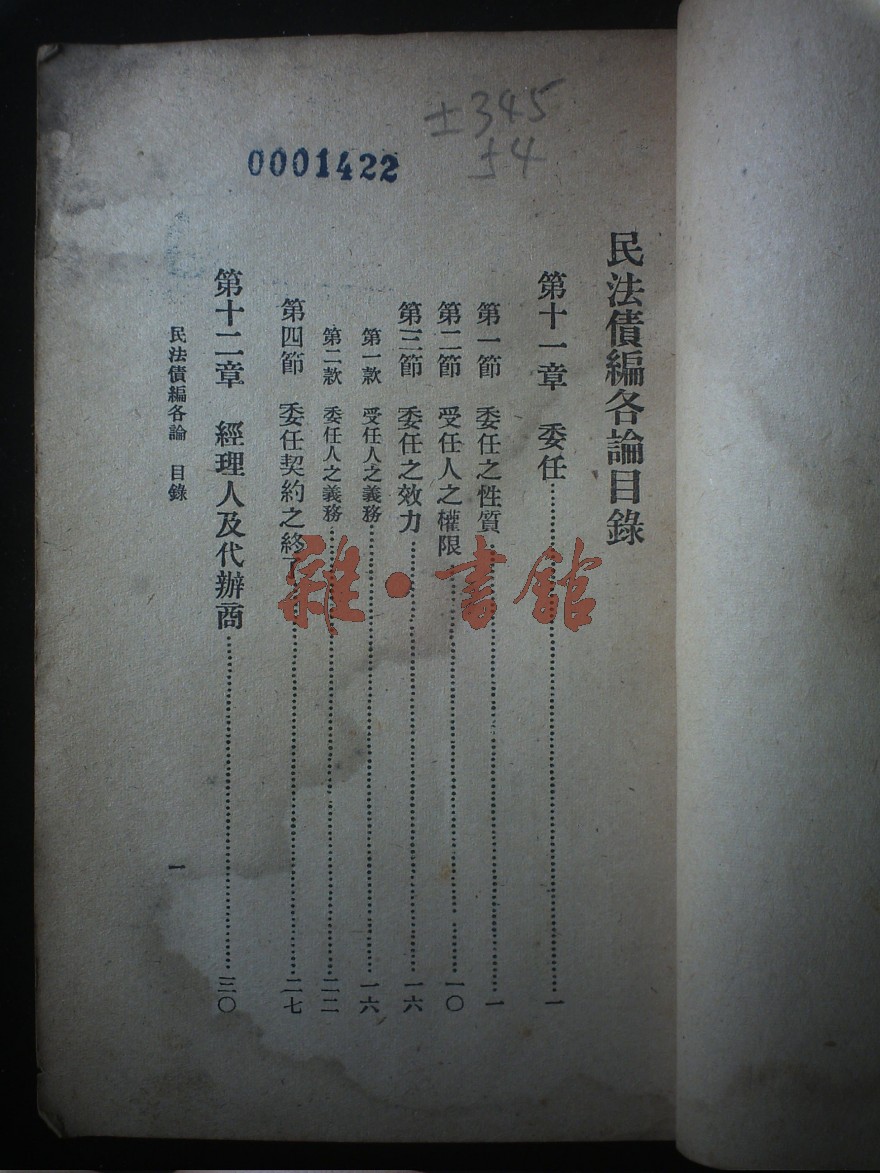 ±345
±4
0001422
民法債編各論目錄
第十一章　委任……一
第一節　委任之性質……一
第二節　受任人之權限……一〇
第三節　委任之效力……一六
第一款　受任人之義務……一六
第二款　委任人之義務……二二
第四節　委任契約之終了……二七
第十二章　經理人及代辦商……三〇
民法債編各論　目錄
一
雜·書館